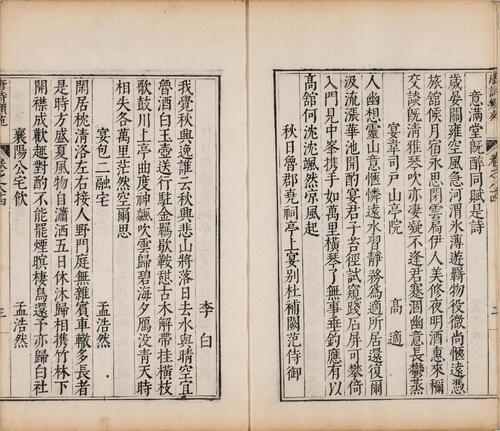 意滿堂既醉同賦是詩
歲晏關雍空風急河渭氷薄遊羇物役微尚愜遠憑
旅館候月宿永思閉雲扃伊人美修夜明酒惠來稱
交談旣清雅琴吹亦淒凝不逢君蹇涸幽意長鬱蒸
宴韋司戸山亭院 高適
人幽想靈山意愜憐遠水習靜務為適所居還復爾
汲流漲華池開酌宴君子苔徑試窺踐石屏可攀倚
入門見中峯携手如萬里橫琴了無事垂釣應有以
高館何沈沈颯然凉風起
秋日魯郡堯祠亭上宴别杜補闕范侍御
李白
我覺秋興逸誰云秋興悲山將落日去水與晴空宜
魯酒白玉壺送行駐金羈歇鞍憩古木解帶挂橫枝
歌鼓川上亭曲度神飇吹雲歸碧海夕鴈没青天時
相失各萬里茫然空爾思
宴包二融宅 孟浩然
閑居枕清洛左右接人野門庭無雜賓車轍多長者
是時方盛夏風物自瀟洒五日休沐歸相携竹林下
開襟成歡趣對酌不能罷煙暝棲鳥還予亦歸白社
襄陽公宅飲 孟浩然